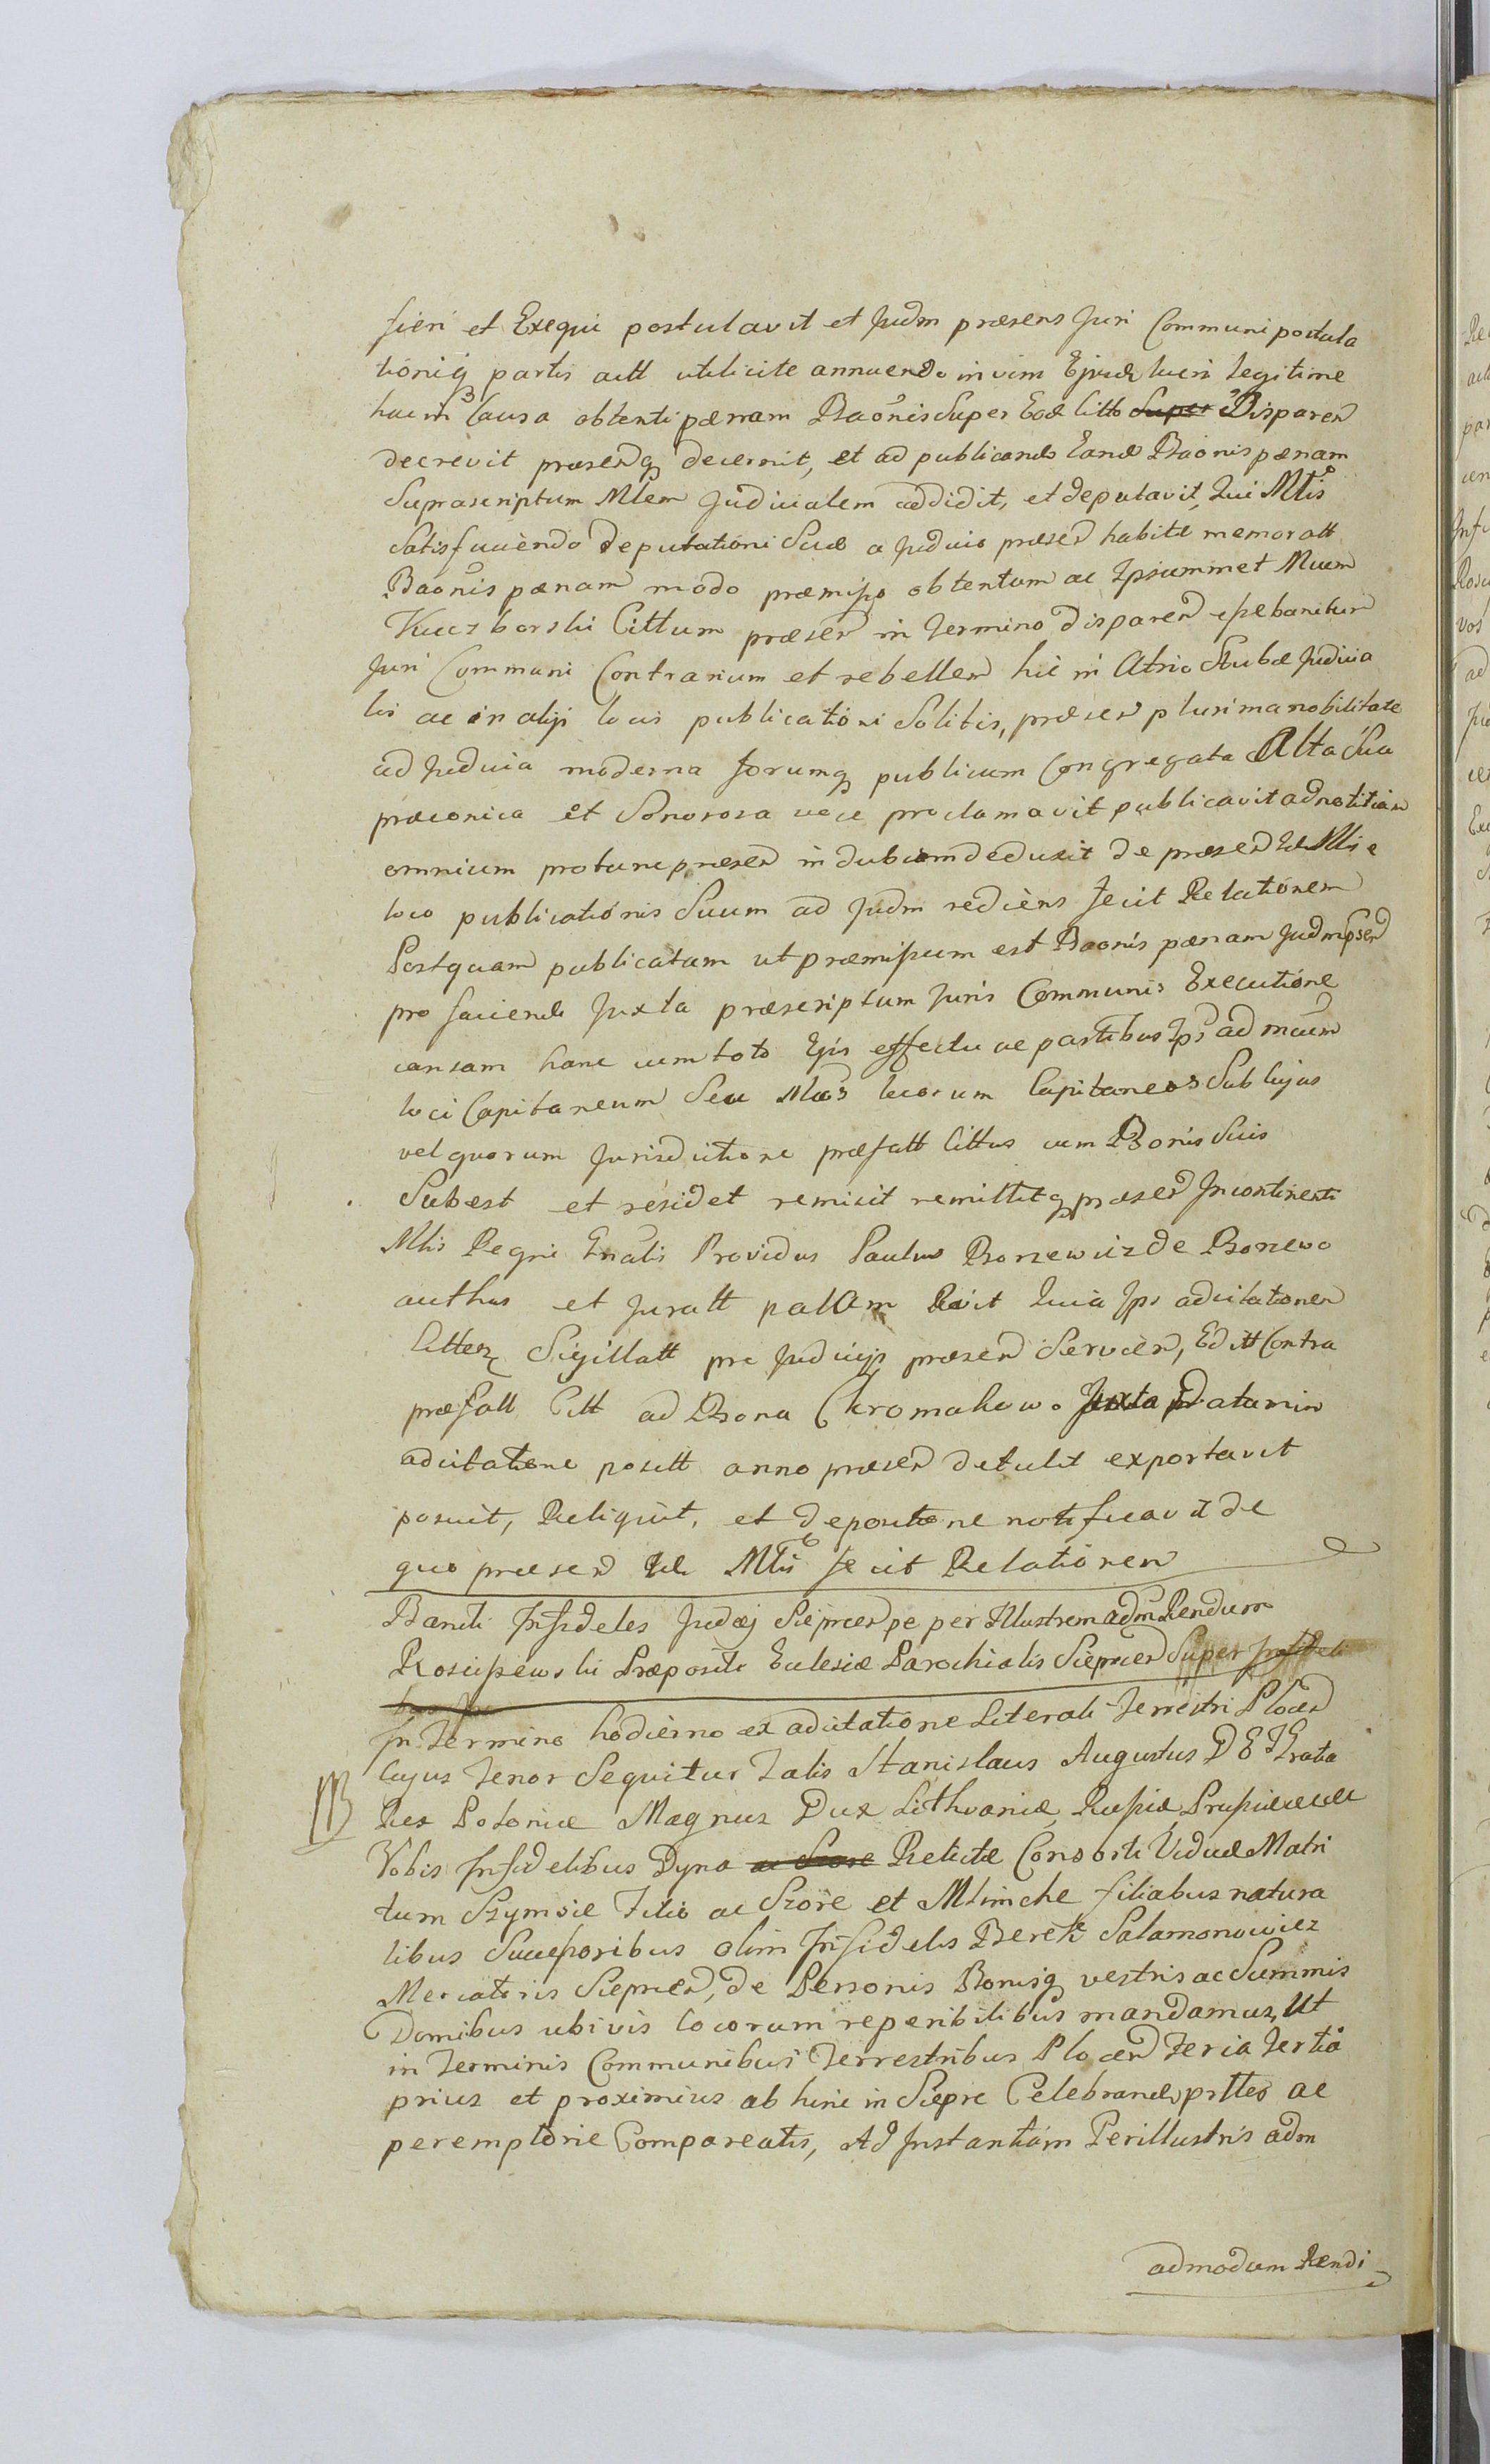 fieri et Exequi postulavit et Judm præsens Juri Communi postula
tioniq partis actt utilicite annuendo in vim Ejusd lucri legitime
hac in Causa obtenti pænam Baonis Super Eod Citto Super Disparen
decrevit præsenq decernit, et ad publicand Eand Baonis pænam
Suprascriptum Mlem Judicialem addidit, et deputavit, Qui Mtis
Satisfaciendo deputationi Suæ a Judicio præsen habitæ memoratt
Baonis pænam modo præmisso obtentam ac Ipsummet Mucm
Kuczborski Cittum præsen in Termino disparen esse banitum
Juri Communi Contrarium et rebellem hic in Atrio Stubæ Judicia
lis ac in alijs locis publicationi Solitis, præsen plurima nobilitate
ad Judicia moderna forumq publicum Congregata Alta Sua
præconica et Sonorosa voce proclamavit publicavit ad notitiam
omnium protunc præsen in dubiam deduxit de præsen Id Mlis e
loco publicationis Suum ad Judm rediens fecit Relationem
Postquam publicatam ut præmissum est Baonis pænam Judm psen
pro faciend Juxta præscriptum Juris Communis Executione
causam hanc cum toto Ejus effectu ac partibus Ips ad mcum
loci Capitaneum Seu Mcos locorum Capitaneos Sub cujus
vel quorum Jurisdictione præfatt Cittus cum Bonis Suis
Subest et residet remisit remittitq præsen Incontinenti
Mlis Regni Gnalis Providus Paulus Borzewicz de Borzewo
authus et Juratt palam Revit Quia Ips adcitationem
Litter Sigillatt pro Judicijs præsen Servien, Editt Contra
præfatt Citt ad Bona Chromakowo Juxta Datam in
adcitatione positt anno præsen detulit exportavit
posuit, Reliquit, et depositione notificavit de
quo præsen Id Mlis fecit Relationem
Band Infideles Judæj Sieprcen pe per Illustrem adm Rendum
Rosciszewski Præposit Ecclesiæ Parochialis Sieprcen Super Infideli
bus
In Termino hodierno ex adcitatione Literali Terrestri Plocen
Cujus Tenor Sequitur Talis Stanislaus Augustus D E Gratia
Rex Poloniæ Magnus Dux Lithvaniæ, Russiæ Prussiæ
Vobis Infidelibus Dyna ac Szore Relictæ Consorti Viduæ Matri
tum Szymsie Filio ac Szore et Mlimche filiabus natura
libus Successoribus olim Infidelis Berek Salamonowicz
Mercatoris Sieprcen, de Personis Bonisq vestris ac Summis
Domibus ubivis locorum reperibilibus mandamus, Ut
in Terminis Communibus Terrestribus Plocen Feria Tertia
prius et proximius ab hinc in Siepre Celebrand, pttes ac
peremptorie Compareatis, Ad Instantiam Perillustris adm
admodum Rendi